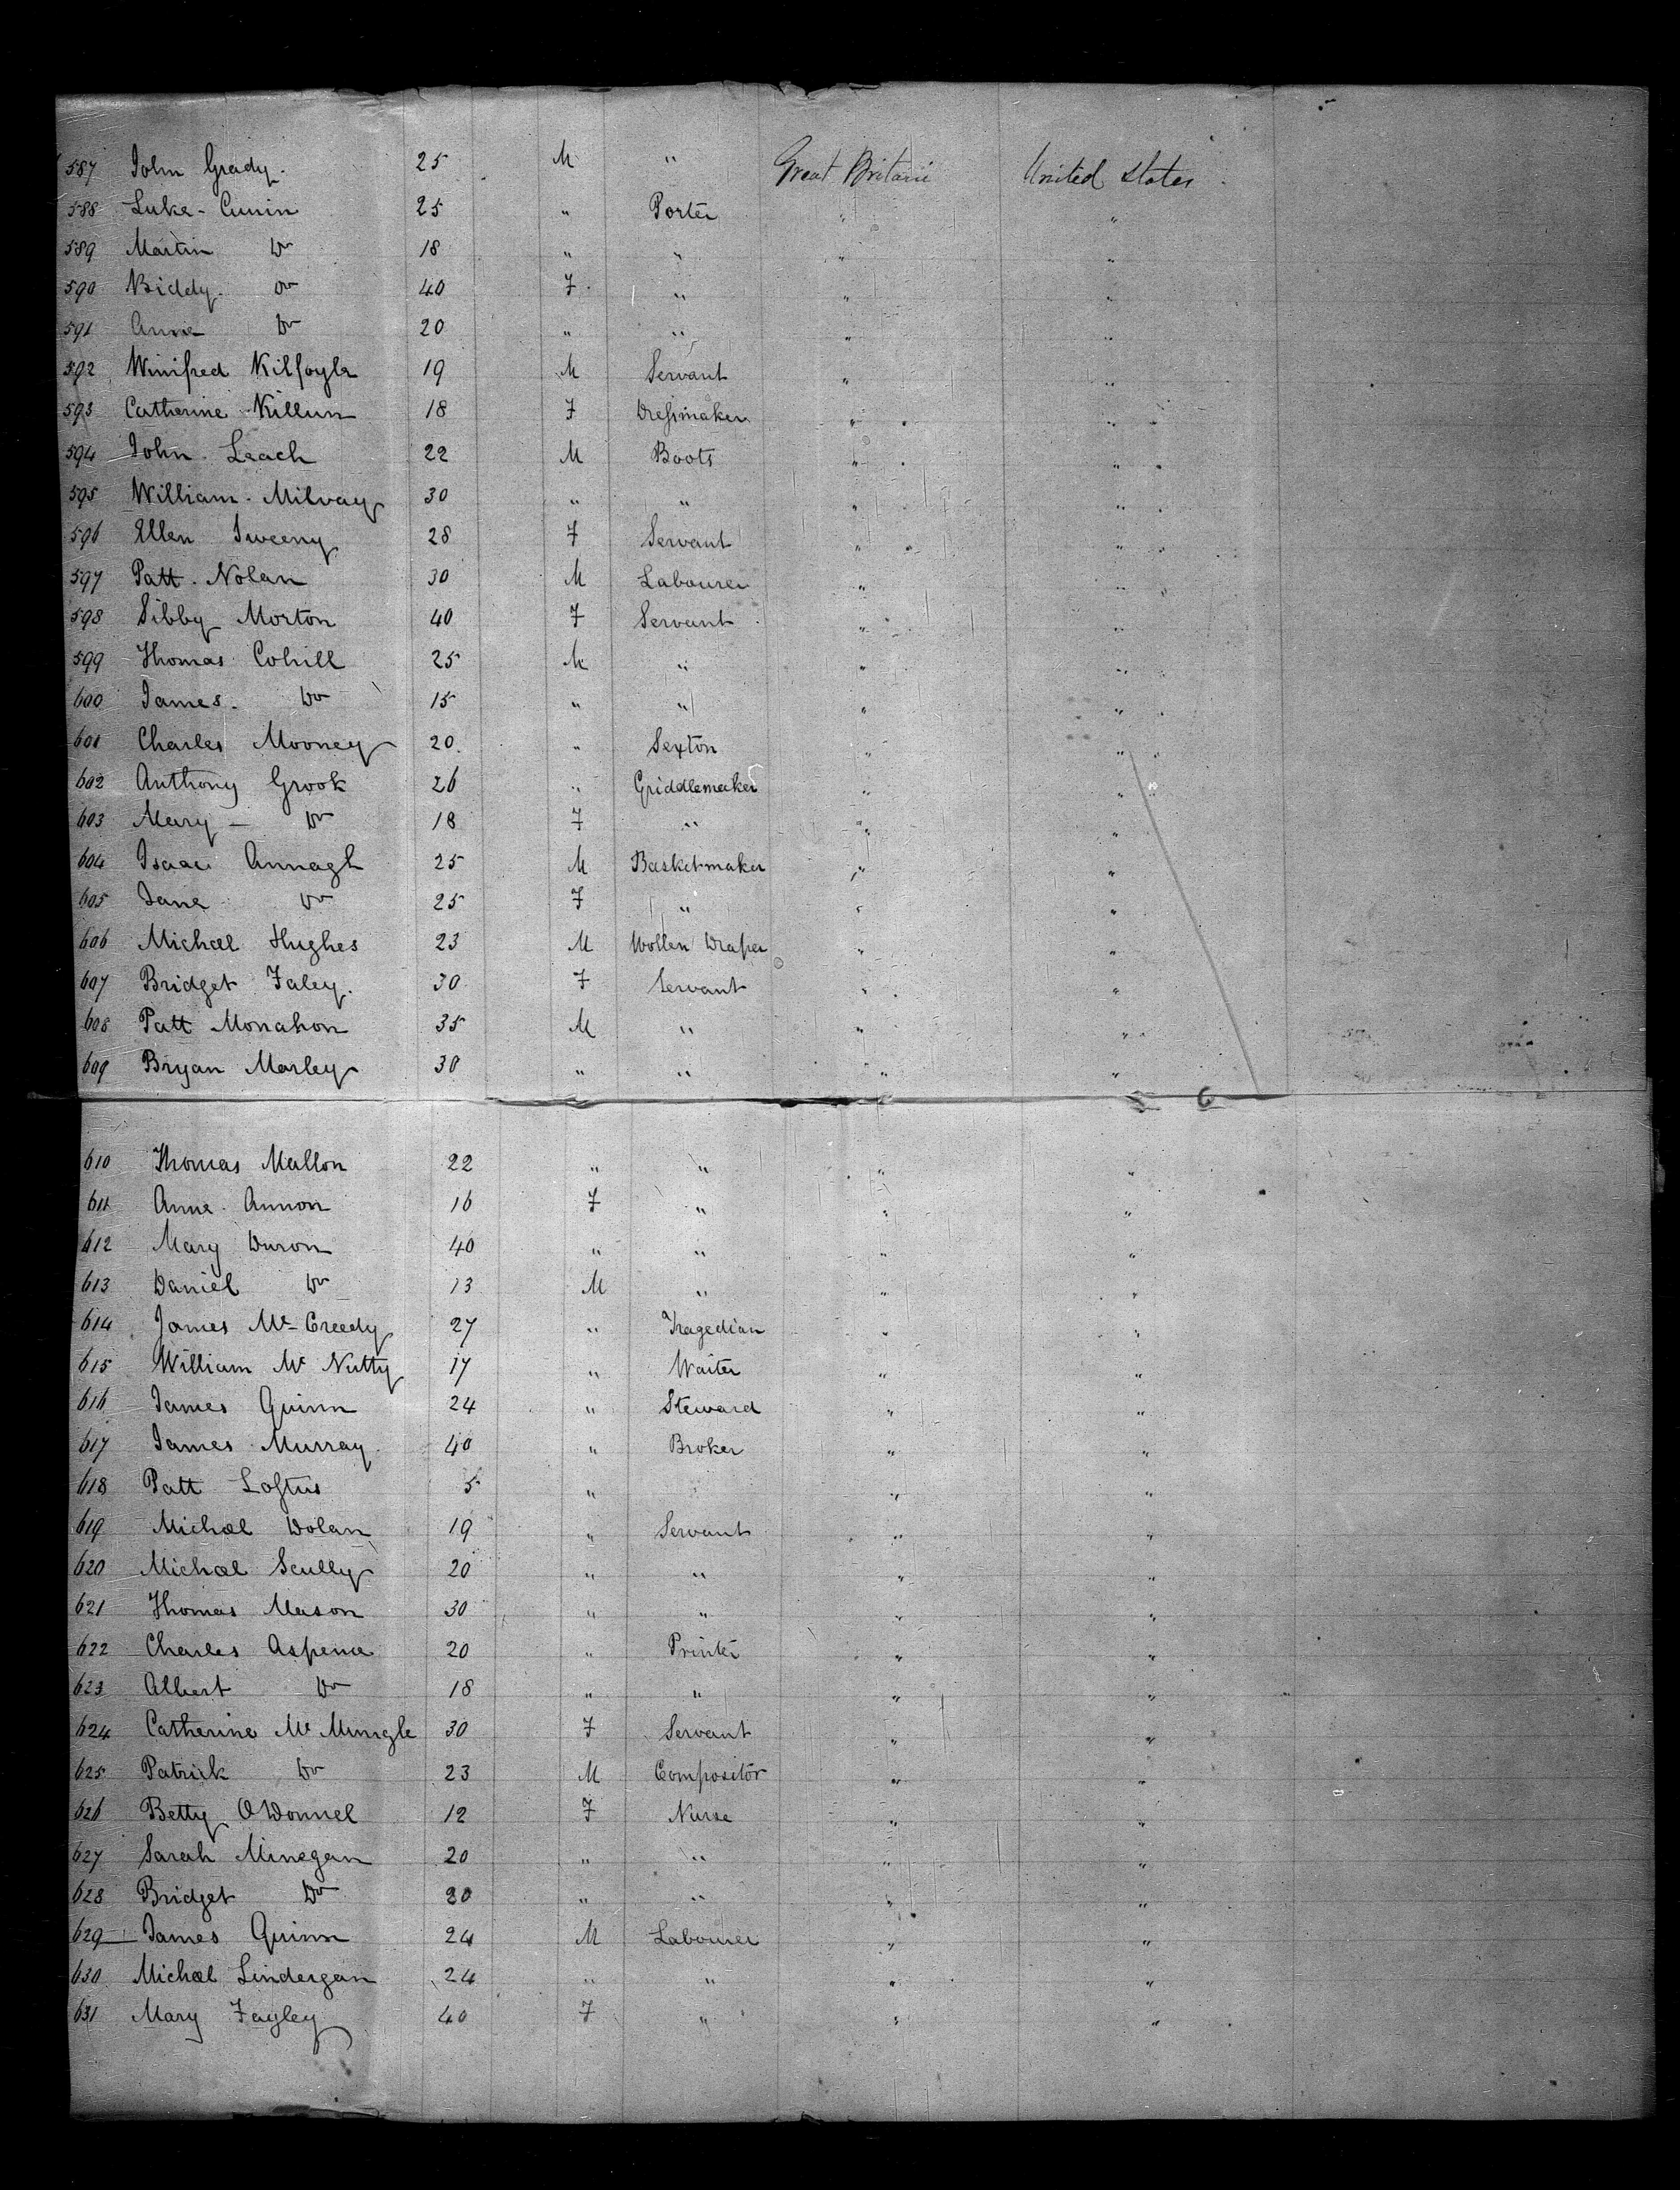 587 John Grady. 25 M " Great Britain United States
588 Luke Cunin 25 " Porter " "
589 Martin Do 18 " " " "
590 Biddy Do 40 F " " "
591 Anne Do 20 " " " "
592 Winifred Kilfoyle 19 M Servant " "
593 Catherine Killun 18 F Dressmaker " "
594 John Leach 22 M Boots " "
595 William Milvay 30 " " " "
596 Ellen Sweeny 28 F Servant " "
597 Patt Nolan 30 M Labourer " "
598 Sibby Morton 40 F Servant " "
599 Thomas Cohill 25 M " " "
600 James Do 15 " " " "
601 Charles Mooney 20 " Sexton " "
602 Anthony Grook 26 " Griddlemaker " "
603 Mary Do 18 F " " "
604 Isaac Annagh 25 M Basketmaker " "
605 Jane Do 25 F " " "
606 Michael Hughes 23 M Wollen Draper " "
607 Bridget Faley. 30 F Servant " "
608 Patt Monahon 35 M " " "
609 Bryan Marley 30 " " " "
610 Thomas Mallon 22 " " " "
611 Anne Annon 16 F " " "
612 Mary Duron 40 " " " "
613 Daniel Do 13 M " " "
614 James Mc Creedy 27 " Tragedian " "
615 William Mc Nutty 17 " Waiter " "
616 James Quinn 24 " Steward " "
617 James Murray 40 " Broker " "
618 Patt Loftus 5 " " "
619 Michael Dolan 19 " Servant " "
620 Michael Scully 20 " " " "
621 Thomas Mason 30 " " " "
622 Charles Aspence 20 " Printer " "
623 Albert Do 18 " " " "
624 Catherine Mc Mungle 30 F Servant " "
625 Patrick Do 23 M Compositor " "
626 Betty O'Donnel 12 F Nurse " "
627 Sarah Minegan 20 " " " "
628 Bridget Do 20 " " " "
629 James Quinn 24 M Labourer " "
630 Michael Lindergan 24 " " " "
631 Mary Fayley 40 F " " "